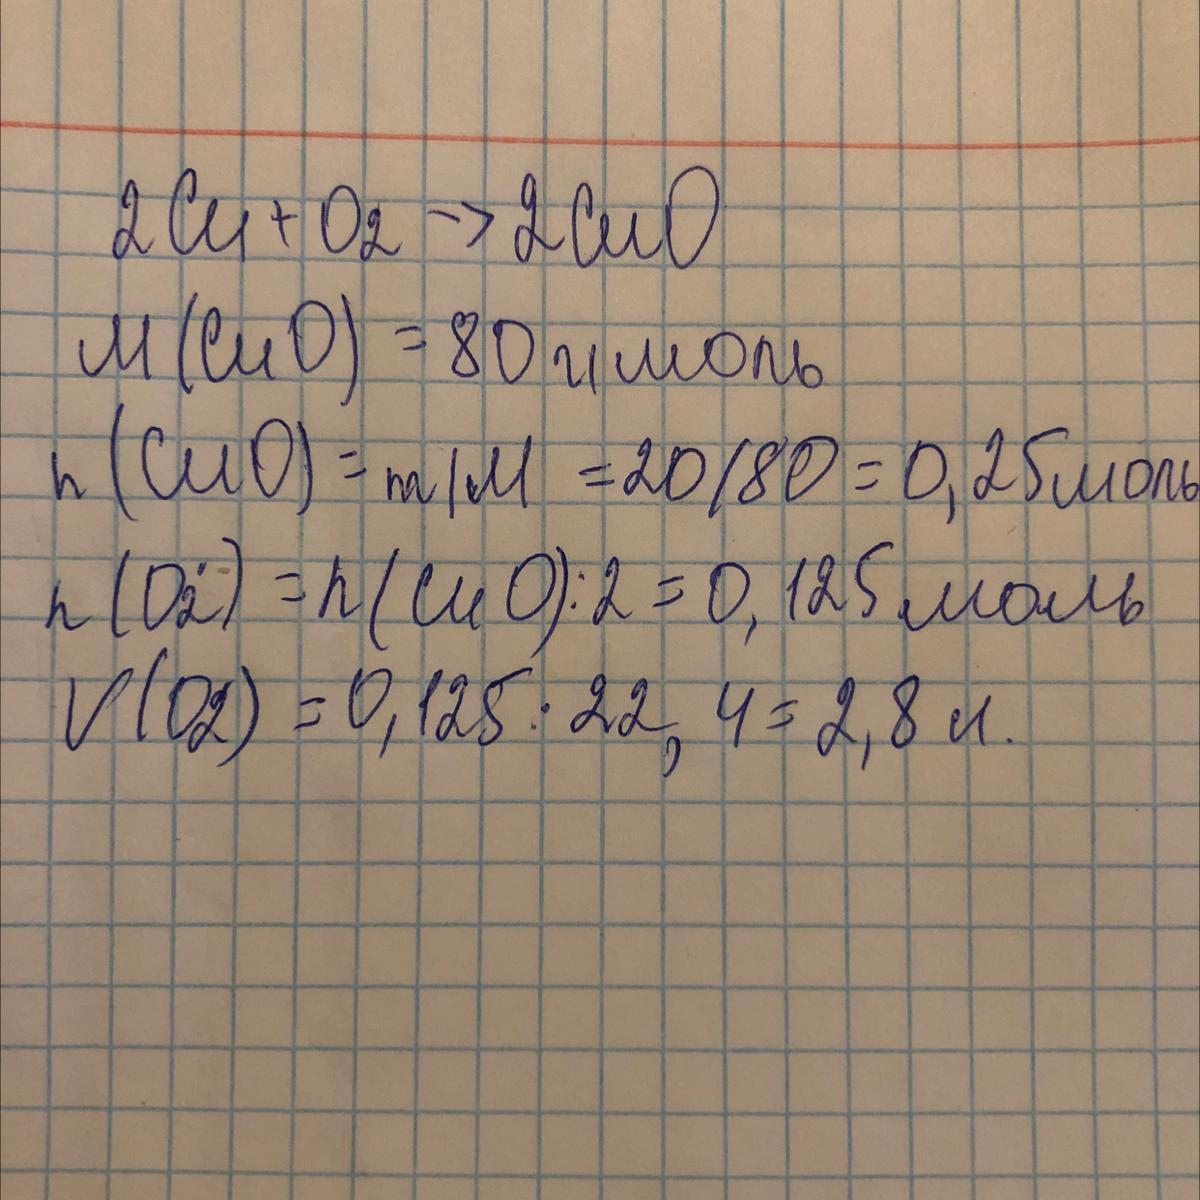 2Cu + O2 -> 2CuO
M(CuO) = 80 г/моль
n(CuO) = m/M = 20/80 = 0,25 моль
n(O2) = n(CuO):2 = 0,125 моль
V(O2) = 0,125·22,4 = 2,8 л.